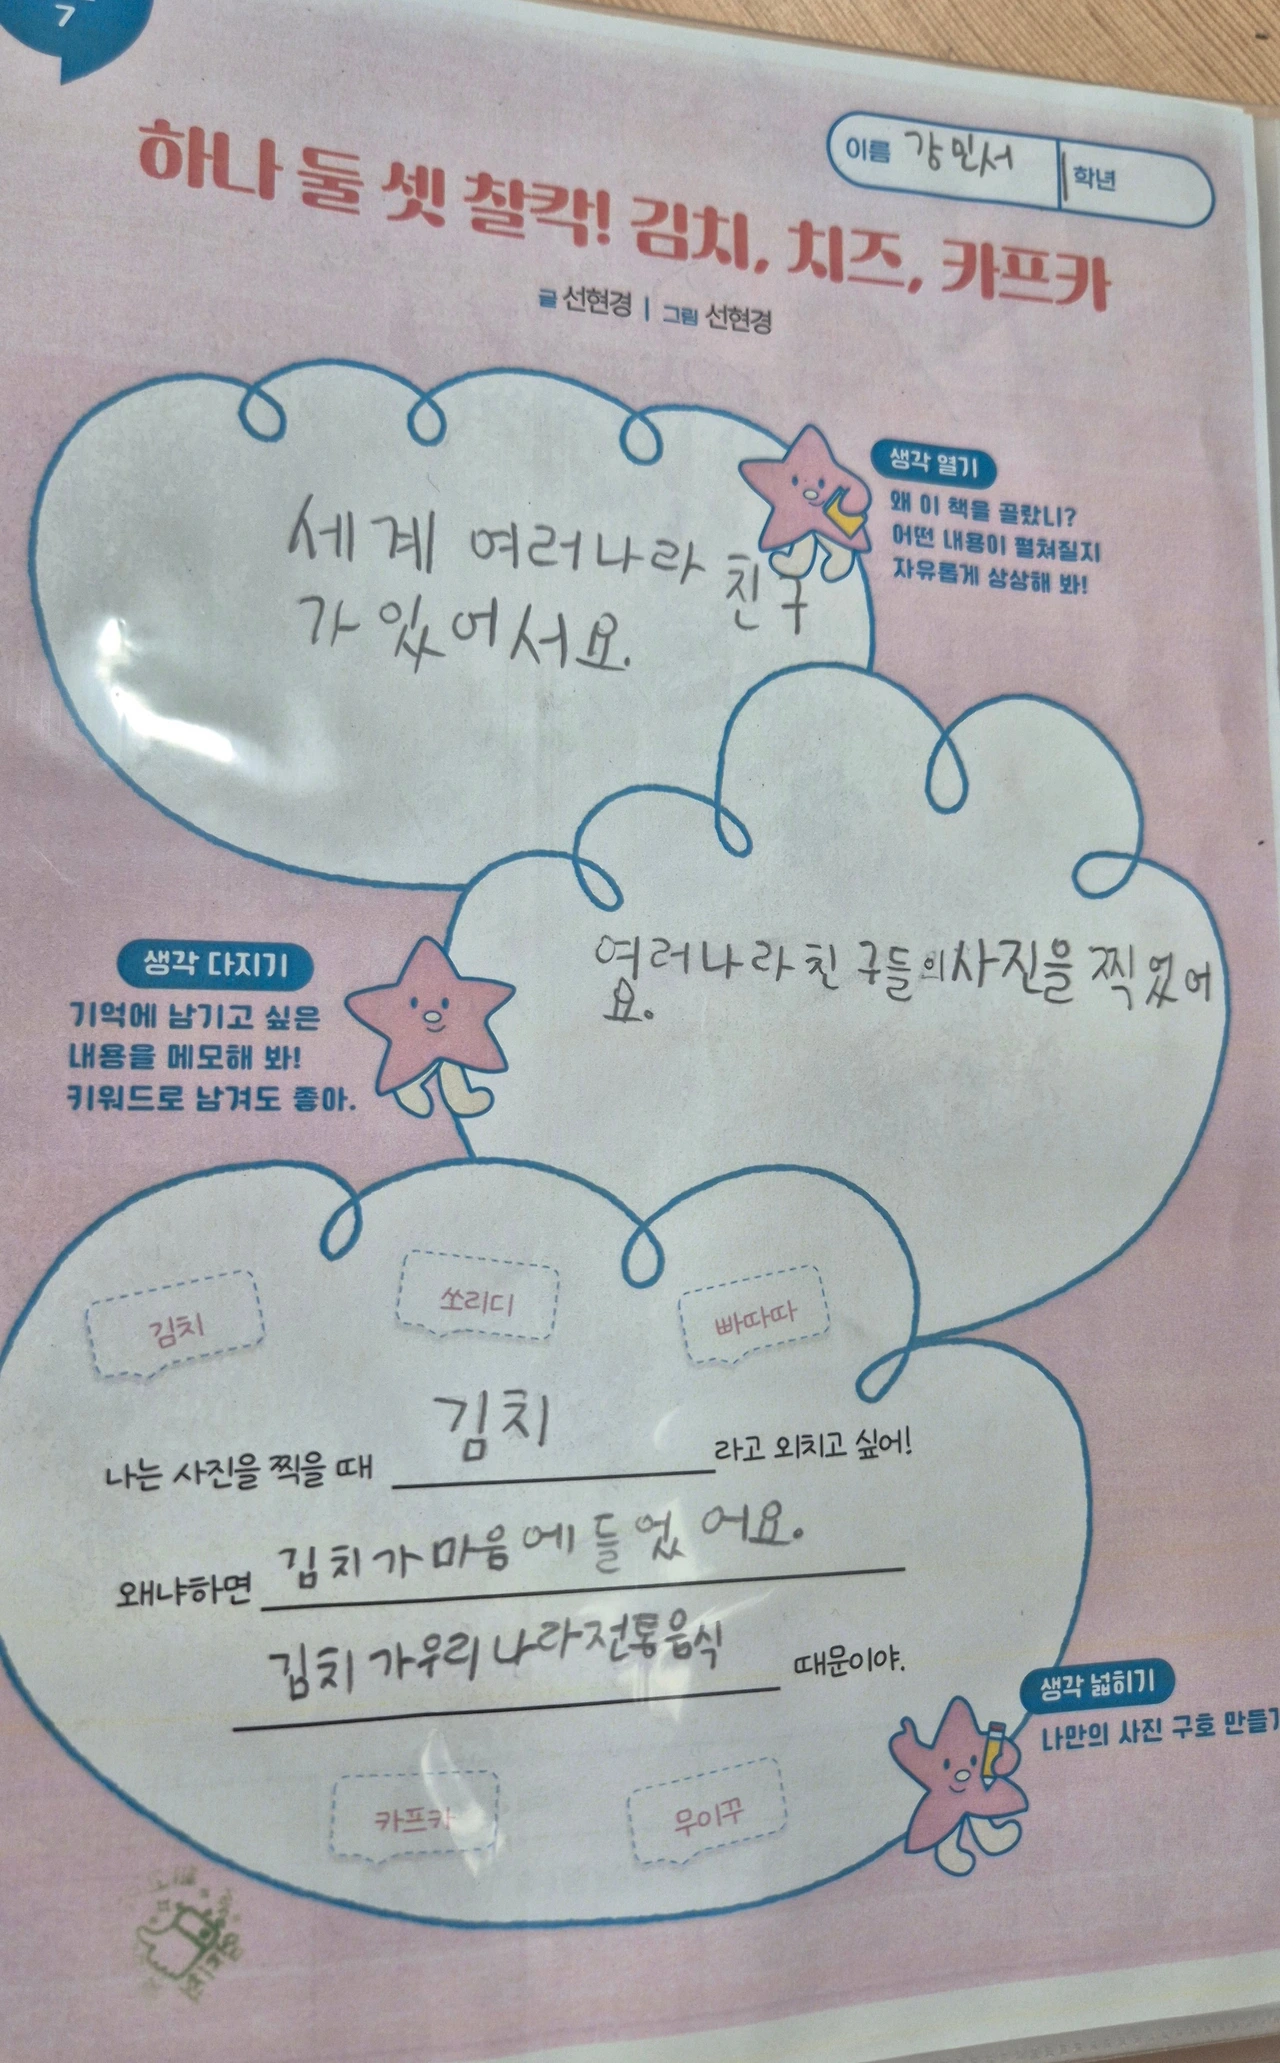 7
이름 강민서 학년
하나 둘 셋 찰칵! 김치, 치즈, 카프카
글 선현경 | 그림 선현경
생각 열기
왜 이 책을 골랐니?
어떤 내용이 펼쳐질지
자유롭게 상상해 봐!
세계 여러나라 친구
가 있어서요.
생각 다지기
기억에 남기고 싶은
내용을 메모해 봐!
키워드로 남겨도 좋아.
여러나라친구들의사진을 찍었어
요.
김치
쏘리디
빠따따
나는 사진을 찍을 때 김치 라고 외치고 싶어!
왜냐하면 김치가마음에들었어요.
김치가우리나라전통음식 때문이야.
생각 넓히기
나만의 사진 구호 만들기
카프카
무이꾸